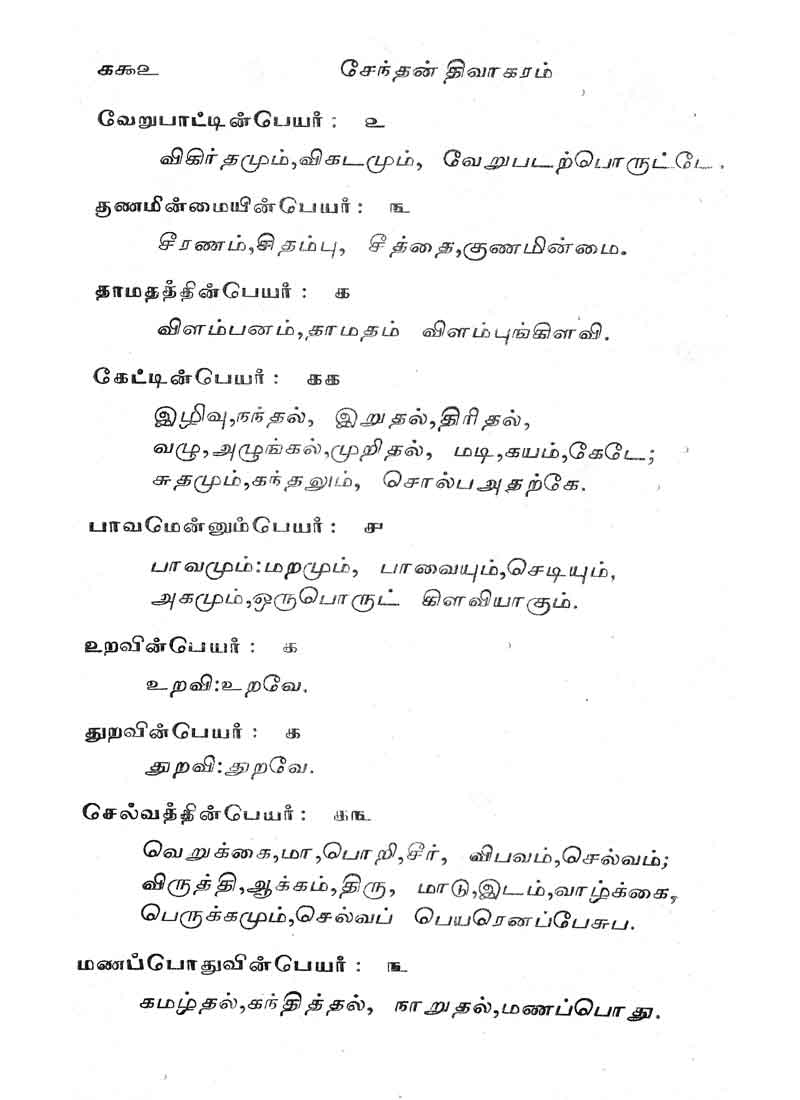 ௧௯௨ சேந்தன் திவாகரம்
வேறுபாட்டின்பெயர் : ௨
விகிர்தமும்,விகடமும், வேறுபடற்பொருட்டே.
குணமின்மையின்பெயர் : ௩
சீரணம்,சிதம்பு, சீத்தை,குணமின்மை.
தாமதத்தின்பெயர் : ௧
விளம்பனம்,தாமதம் விளம்புங்கிளவி.
கேட்டின்பெயர் : ௧௧
இழிவு,நந்தல், இறுதல்,திரிதல்,
வழு,அழுங்கல்,முறிதல், மடி,கயம்,கேடே;
சுதமும்,கந்தலும், சொல்பஅதற்கே.
பாவமென்னும்பெயர் : ௪
பாவமும்:மறமும், பாவையும்,செடியும்,
அகமும்,ஒருபொருட் கிளவியாகும்.
உறவின்பெயர் : ௧
உறவி:உறவே.
துறவின்பெயர் : ௧
துறவி:துறவே.
செல்வத்தின்பெயர் : ௧௩
வெறுக்கை,மா,பொறி,சீர், விபவம்,செல்வம்;
விருத்தி,ஆக்கம்,திரு, மாடு,இடம்,வாழ்க்கை,
பெருக்கமும்,செல்வப் பெயரெனப்பேசுப.
மணப்போதுவின்பெயர் : ௩
கமழ்தல்,கந்தித்தல், நாறுதல்,மணப்பொது.